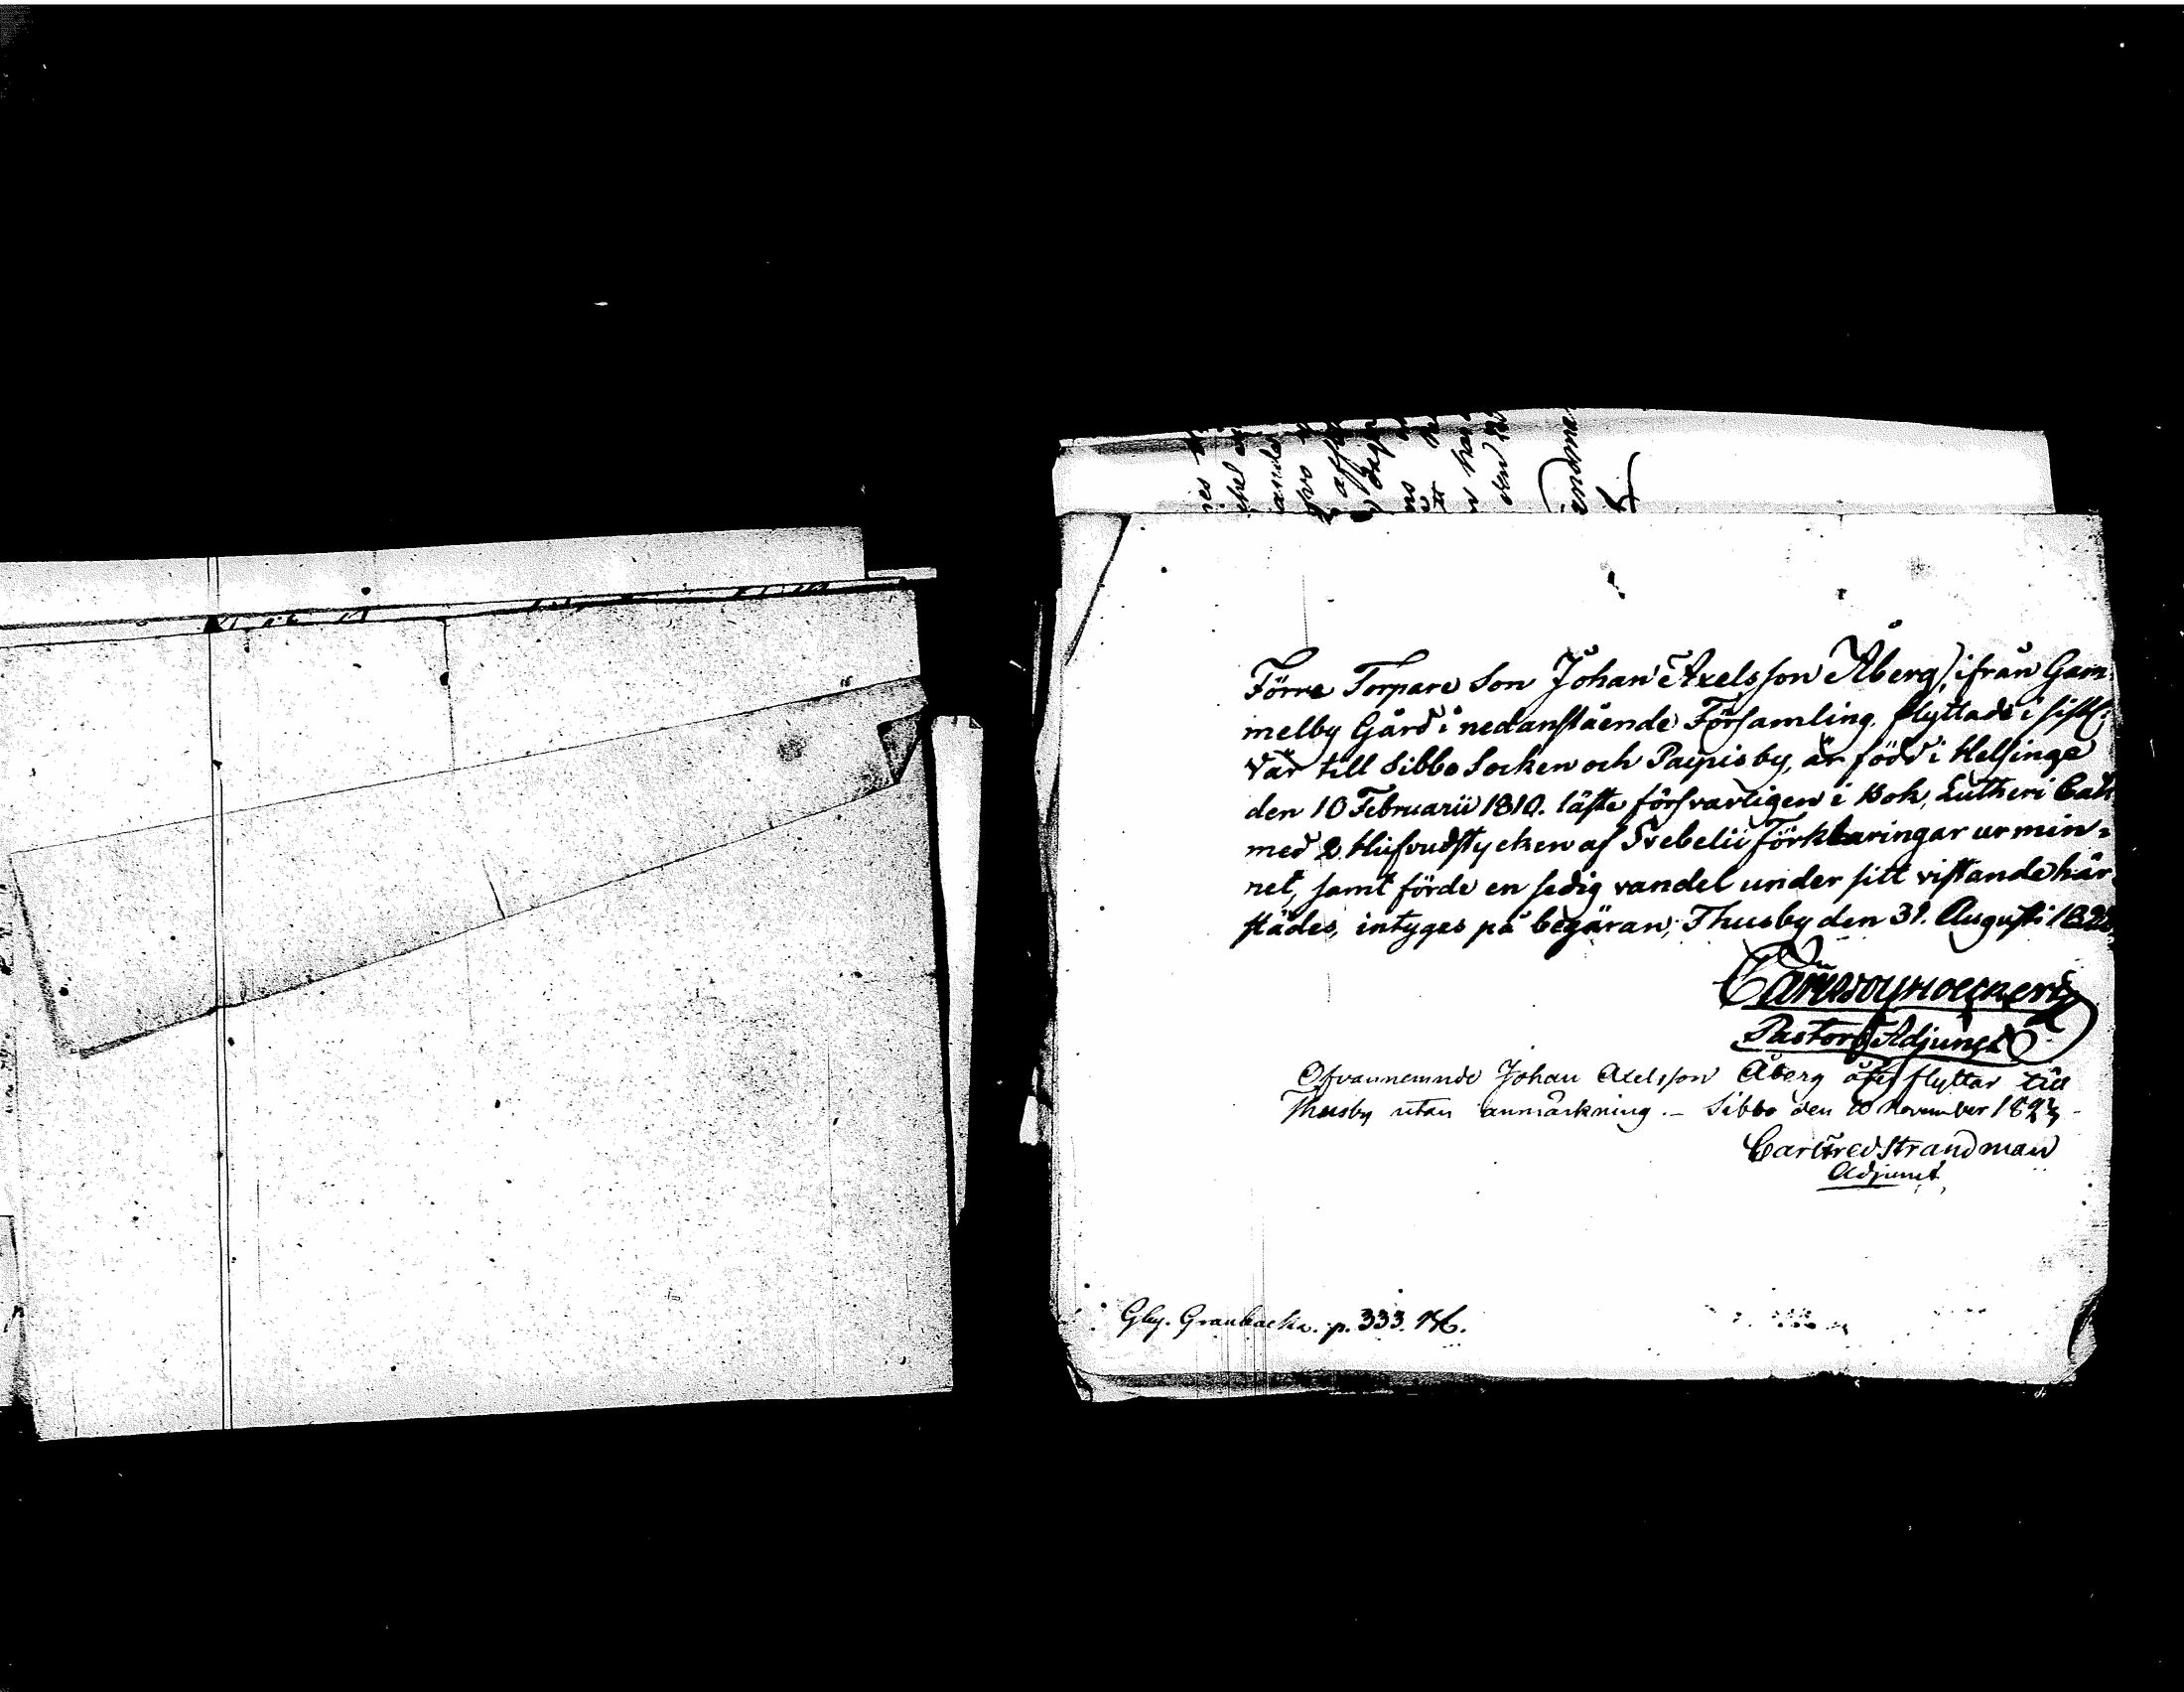 Förre Torpare Son Johan Axelsson Åberg, ifrån Gam
melby Gård i nedanstående Församling, flyttade i sistl.
Vår till Sibbo Socken och Paipis by, är född i Helsinge
den 10 Februarii 1810. läste försvarligen i Bok, Lutheri Cate
med 2 Hufvudstycken af Svebelii Förklaringar ur min-
net, samt förde en sedig vandel under sitt vistande här-
städes, intyges på begäran; Thusby den 31. Augusti
Pastors Adjunct
Ofvannemnde Johan Axelsson Åberg åter flyttar till
Thusby utan anmärkning. - Sibbo den 10 November
Carl Fred Strandman
Adjunct
Gby. Granbacka. p. 333.